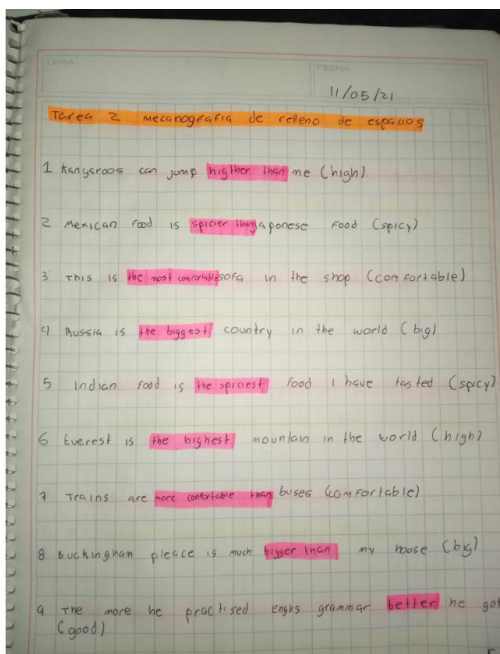 TEMA
FECHA
11/05/21
Tarea 2 mecanografia de relleno de espacios
1 Kangaroos can jump higther than me (high)
2 Mexican food is spicier than japonese food (spicy)
3 This is the most comfortable sofa in the shop (comfortable)
4 Russia is the biggest country in the world (big)
5 Indian food is the spiciest food I have tasted (spicy)
6 Everest is the highest mountain in the world (high)
7 Trains are more confortable than buses (comfortable)
8 Buckinghan pleace is much bigger than my house (big)
9 The more he practised grammar better he got
(good)